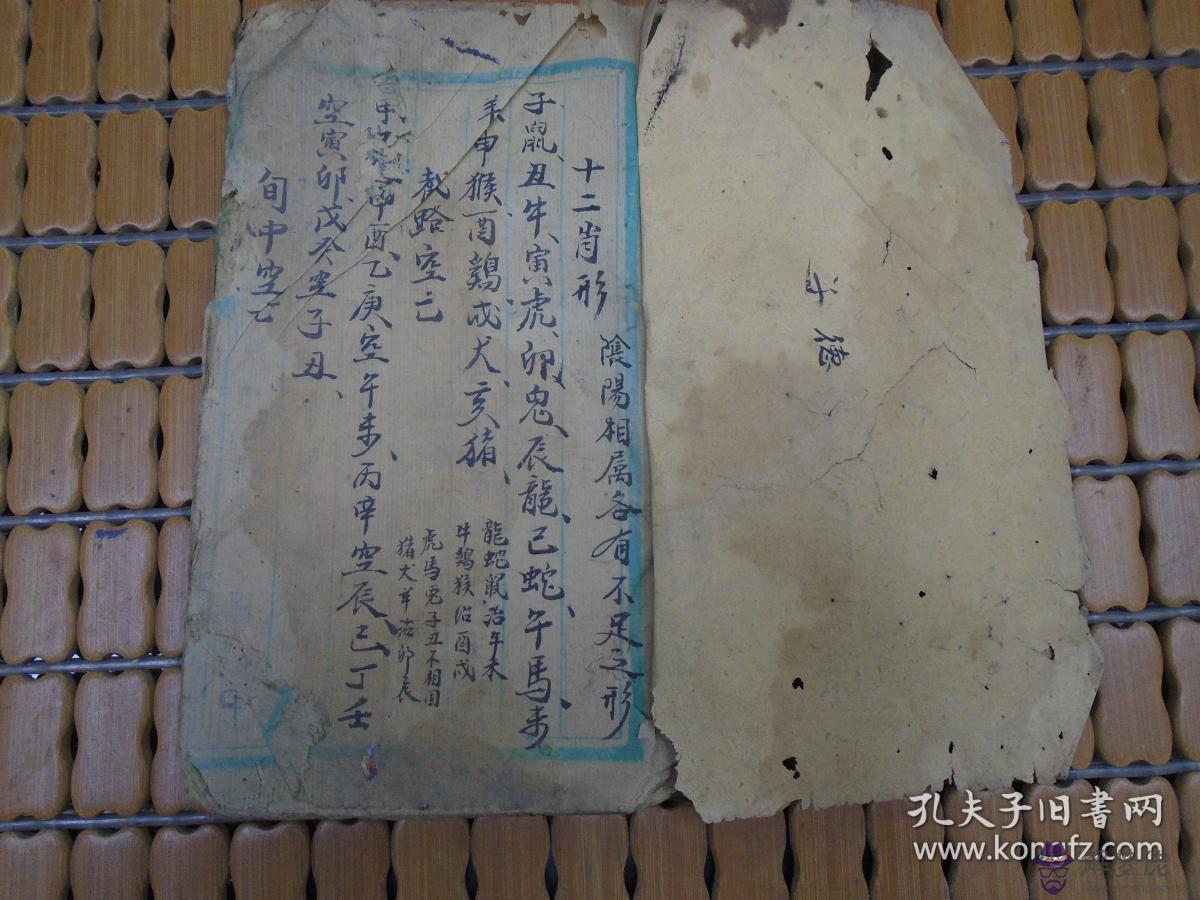 德
十二肖形
陰陽相属各有不足之形
子鼠、丑牛、寅虎、卯兔、辰龍、已蛇、午馬、未
羊申猴酉鷄戍犬亥猪、
龍蛇鼠沿午未
牛鷄猴沿酉戍
虎馬兔子丑不相因
猪犬羊沿卯辰
截路空亡
申酉、乙庚空午未、丙辛空辰、已丁壬
空寅卯、戊癸空子丑、
旬中空亡
孔夫子旧书网
www.kongfz.com